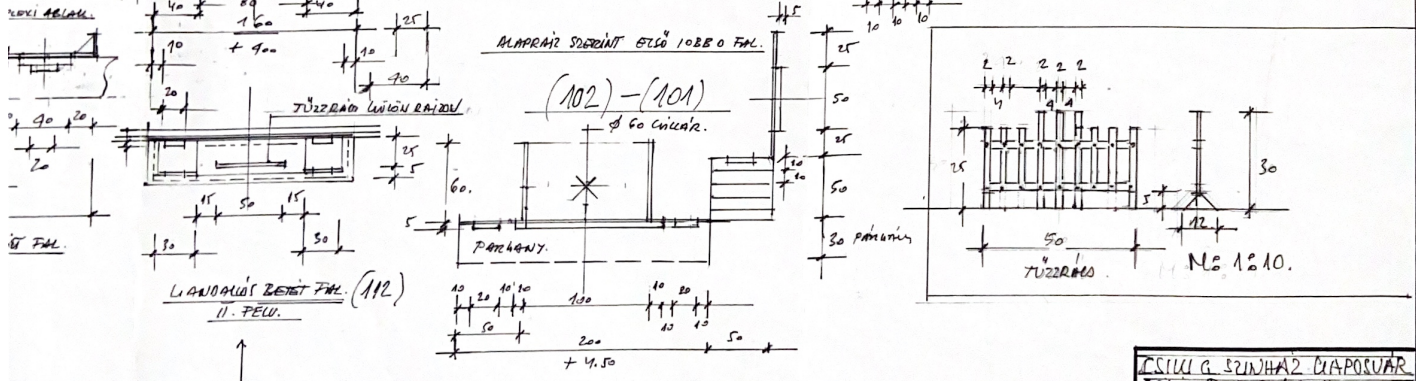 PLEXI ABLAK.
40 80 40
160
+ 400
25
10
10
40
20
TŰZRÁCS KÜLÖN RAJZON
40 20
20
25
5
15 50 15
30 30
FAL.
KANDALLÓS BETÉT FAL. (112)
II. FELV.
ALAPRAJZ SZERINT ELSŐ JOBB O FAL.
(102) – (101)
Ø 60 CSILLÁR.
60.
5
PÁRKÁNY.
10 20 10 20 100 10 20
10 10
50
200 50
+ 4.50
5
25
50
25
10
10
50
30 PÁRKÁNY
10 10 10 10
2 2 2 2 2
4 4 4
25
50
TŰZRÁCS.
5
12
30
M: 1:10.
CSIKI G. SZINHÁZ KAPOSVÁR